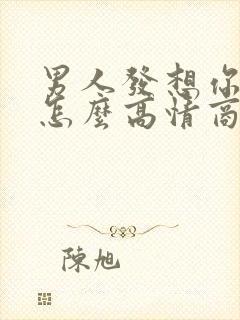 男人發想你
怎麼高情商
陳旭